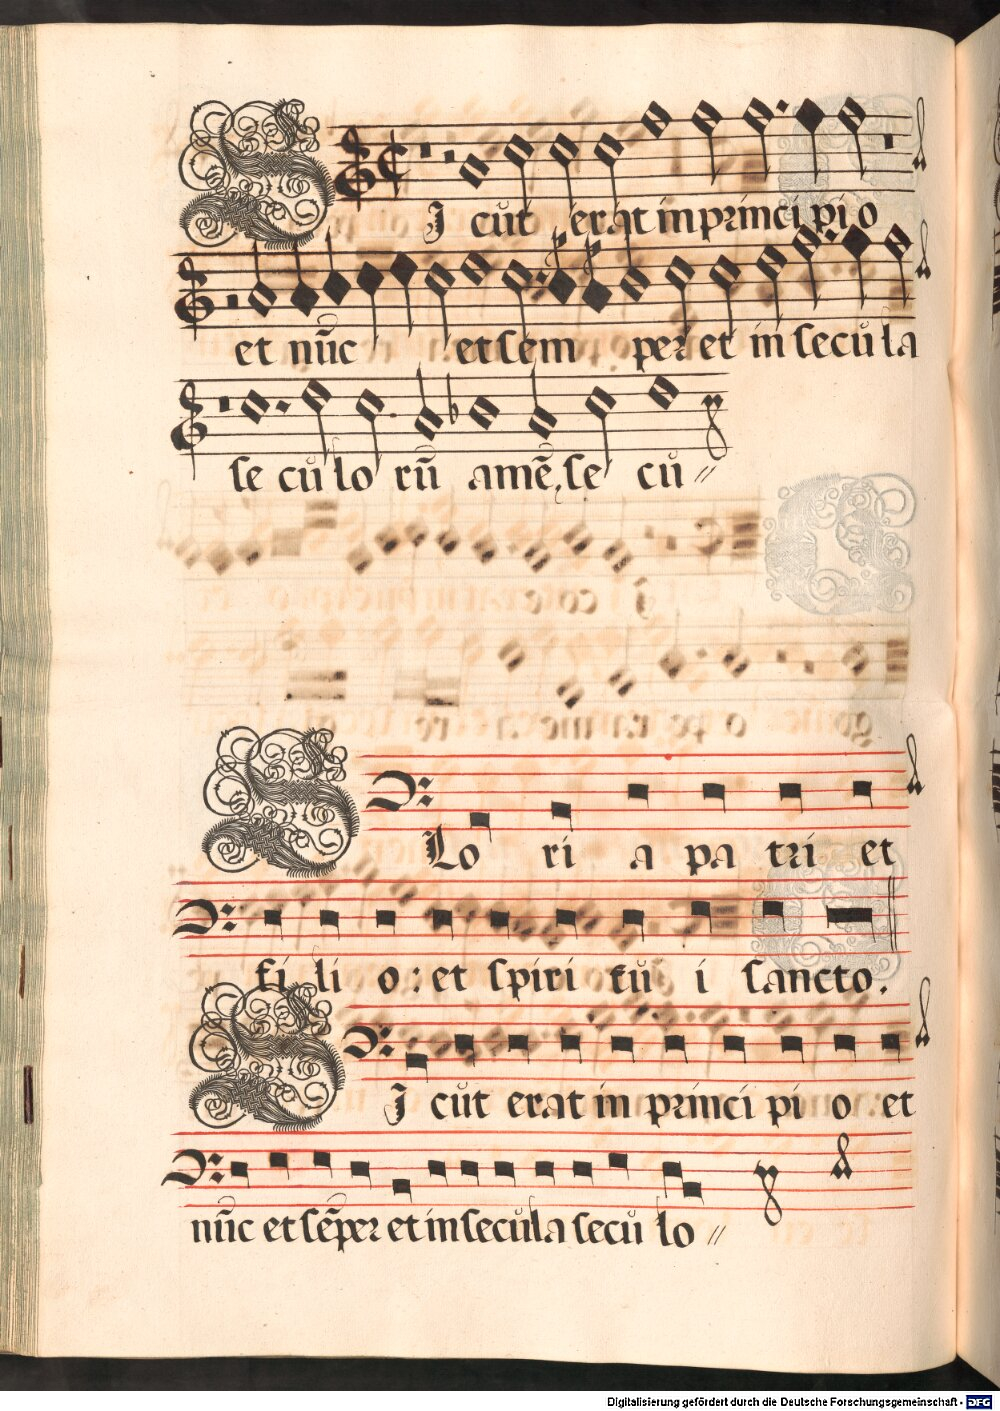 SJ cut erat in principio
et nũc et sem per et in secula
se cu lo rũ amẽ, se cu //
Lo ri a pa tri et
fi li o: et spiri tu i sancto.
SJ cut erat in princi pi o et
nũc et sẽper et in secula secu lo //
Digitalisierung gefördert durch die Deutsche Forschungsgemeinschaft - DFG